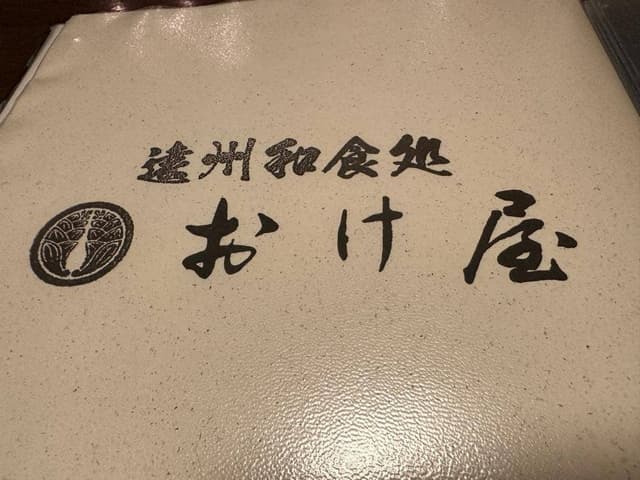 遠州和食処
おけ屋